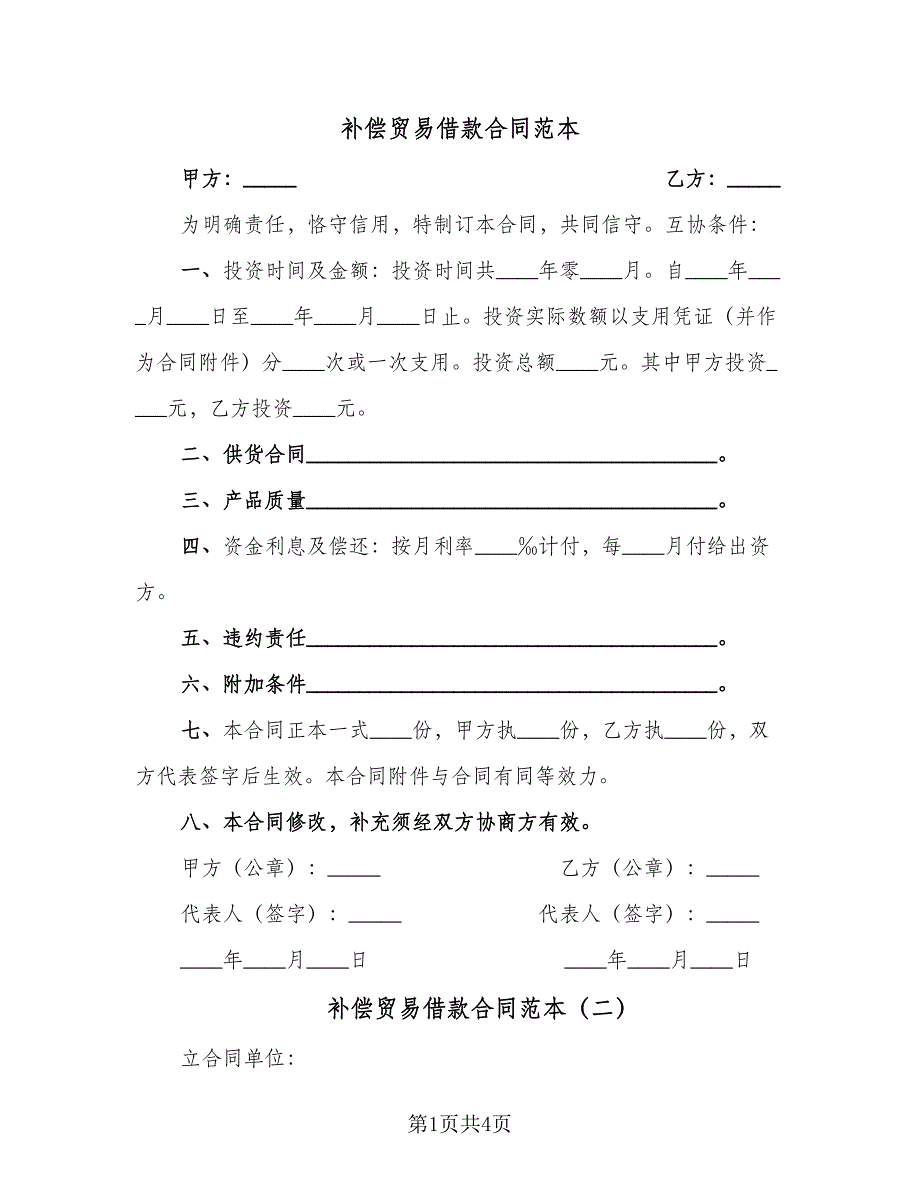 补偿贸易借款合同范本
甲方：_____ 乙方：_____
为明确责任，恪守信用，特制订本合同，共同信守。互协条件：
一、投资时间及金额：投资时间共____年零____月。自____年___
_月____日至____年____月____日止。投资实际数额以支用凭证（并作
为合同附件）分____次或一次支用。投资总额____元。其中甲方投资_
___元，乙方投资____元。
二、供货合同_______________________________________。
三、产品质量_______________________________________。
四、资金利息及偿还：按月利率____‰计付，每____月付给出资
方。
五、违约责任_______________________________________。
六、附加条件_______________________________________。
七、本合同正本一式____份，甲方执____份，乙方执____份，双
方代表签字后生效。本合同附件与合同有同等效力。
八、本合同修改，补充须经双方协商方有效。
甲方（公章）：_____ 乙方（公章）：_____
代表人（签字）：_____ 代表人（签字）：_____
____年____月____日 ____年____月____日
补偿贸易借款合同范本（二）
立合同单位：
第1页共4页